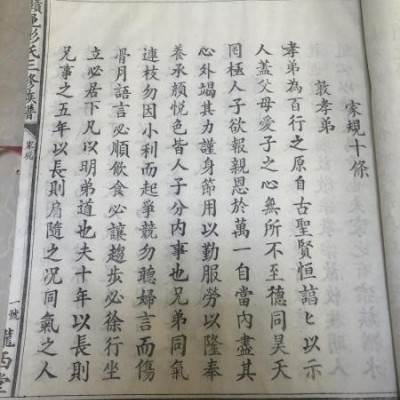 家規十條
敦孝弟
孝弟為百行之原自古聖賢恒諄ヒ以示
人蓋父母愛子之心無所不至德同昊天
罔極人子欲報親恩於萬一自當內盡其
心外竭其力謹身節用以勤服勞以隆奉
養承顏悅色皆人子分內事也兄弟同氣
連枝勿因小利而起爭競勿聽婦言而傷
骨月語言必順飲食必讓趨步必徐行坐
立必居下凡以明弟道也夫十年以長則
兄事之五年以長則肩隨之况同氣之人
彭氏三修族譜
家規
一號
隴西堂